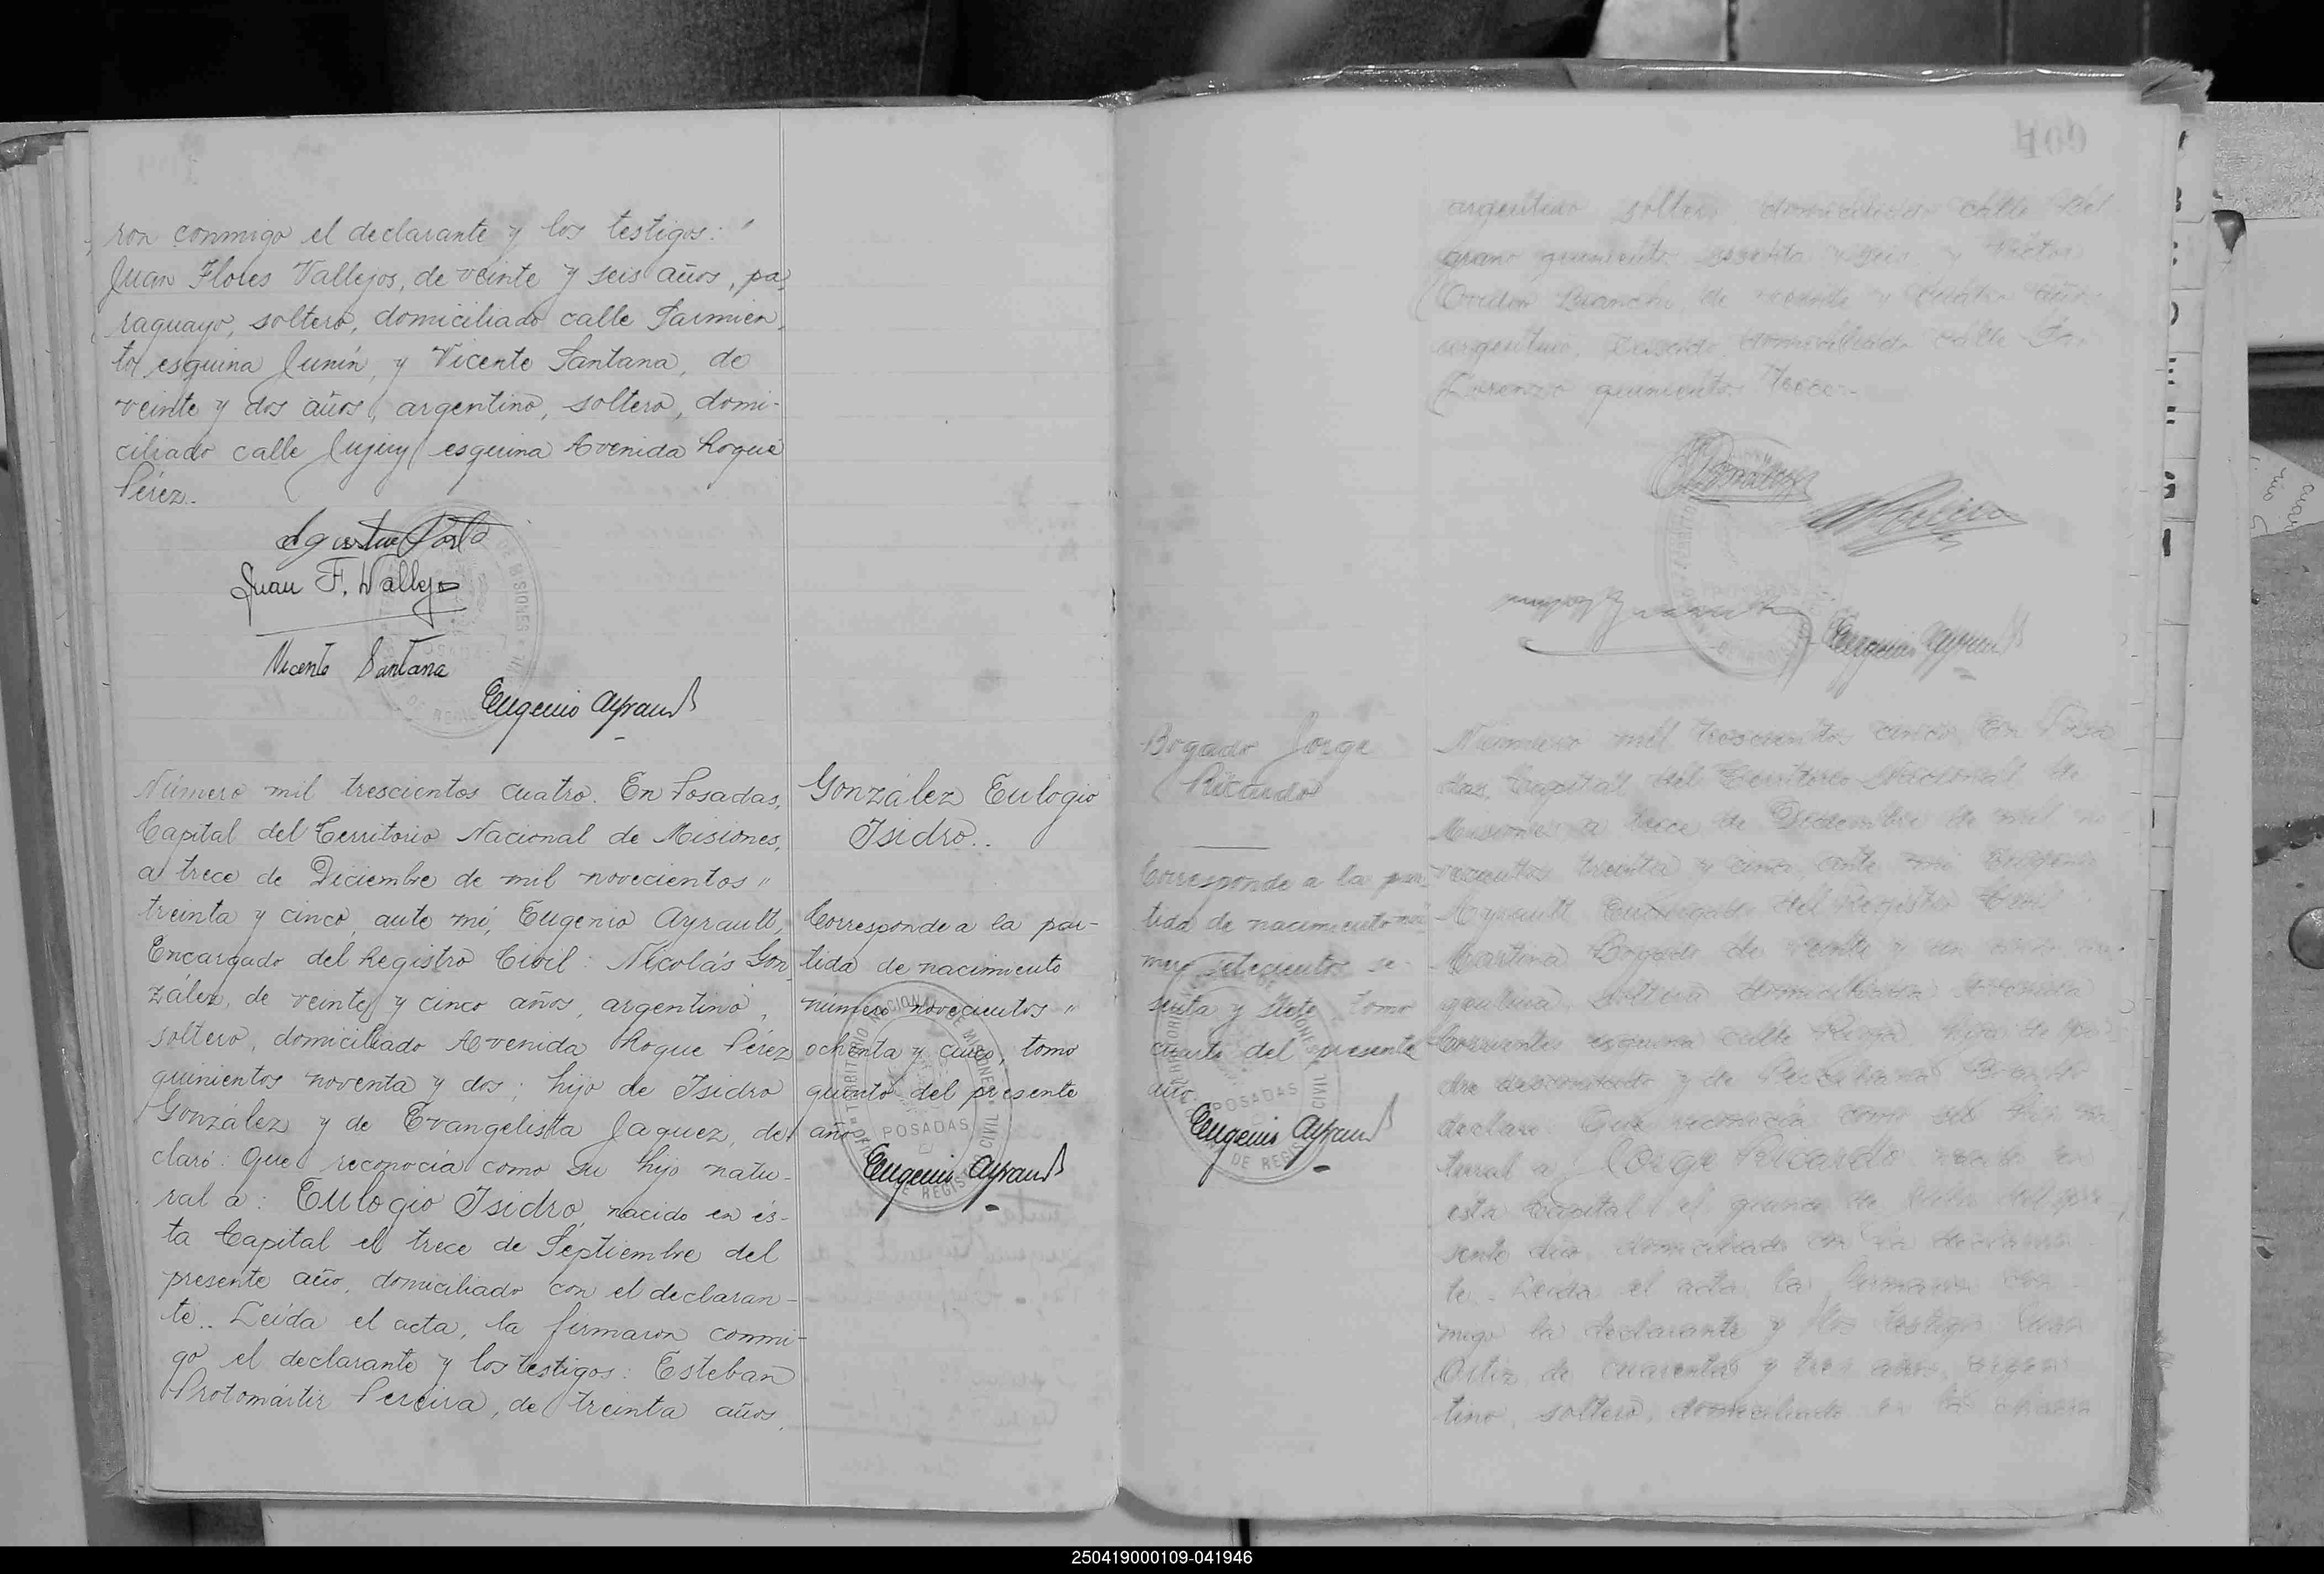 ron conmigo el declarante y los testigos: "
Juan Flores Vallejos, de veinte y seis años, pa-
raguayo, soltero, domiciliado calle Sarmien-
to esquina Junín, y Vicente Santana, de
veinte y dos años, argentino, soltero, domi-
ciliado calle Jujuy esquina Avenida Roque
Pérez.
Juan F. Vallejo
Vicente Santana
Eugenio Ayrault
Número mil trescientos cuatro. En Posadas,
Capital del Territorio Nacional de Misiones,
a trece de Diciembre de mil novecientos "
treinta y cinco, ante mí, Eugenio Ayrault,
Encargado del Registro Civil: Nicolás Gon-
zález, de veinte y cinco años, argentino,
soltero, domiciliado Avenida Roque Pérez
quinientos noventa y dos; hijo de Isidro
González y de Evangelista Jaquez, de-
claró: Que reconocía como su hijo natu-
ral a: Eulogio Isidro, nacido en és-
ta Capital el trece de Septiembre del
presente año, domiciliado con el declaran-
te.. Leída el acta, la firmaron conmi-
go el declarante y los testigos: Esteban
Protomártir Pereira, de treinta años,
González Eulogio
Isidro..
Corresponde a la par-
tida de nacimiento
número novecientos "
ochenta y cinco, tomo
quinto del presente
año.
POSADAS
Eugenio Ayrault
argentino soltero domiciliado calle Bel
grano quinientos sesenta y seis y Víctor
Ovidio Bianchi, de veinte y cuatro años
argentino, casado, domiciliado calle San
Lorenzo quinientos trece.-
Eugenio Ayrault
Bogado Jorge
Ricardo
Corresponde a la par-
tida de nacimiento nú-
mero setecientos se-
senta y siete, tomo
cuarto del presente
año.
POSADAS
Eugenio Ayrault
Número mil trescientos cinco. En Posa
das, Capital del Territorio Nacional de
Misiones a trece de Diciembre de mil no
vecientos treinta y cinco, ante mí Eugenio
Ayrault Encargado del Registro Civil
Martina Bogado de veinte y un años ar-
gentina, soltera domiciliada Avenida
Corrientes esquina calle hija de pa
dre desconocido y de
declaró: Que reconocía como su hijo na
tural a: Jorge Ricardo nacido en
ésta Capital el quince de Julio del pre
sente año, domiciliado con la declaran
te.- Leída el acta, la firmaron con
migo la declarante y los testigos Juan
Ortiz, de cuarenta y tres años, argen
tino, soltero, domiciliado en
250419000109-041946